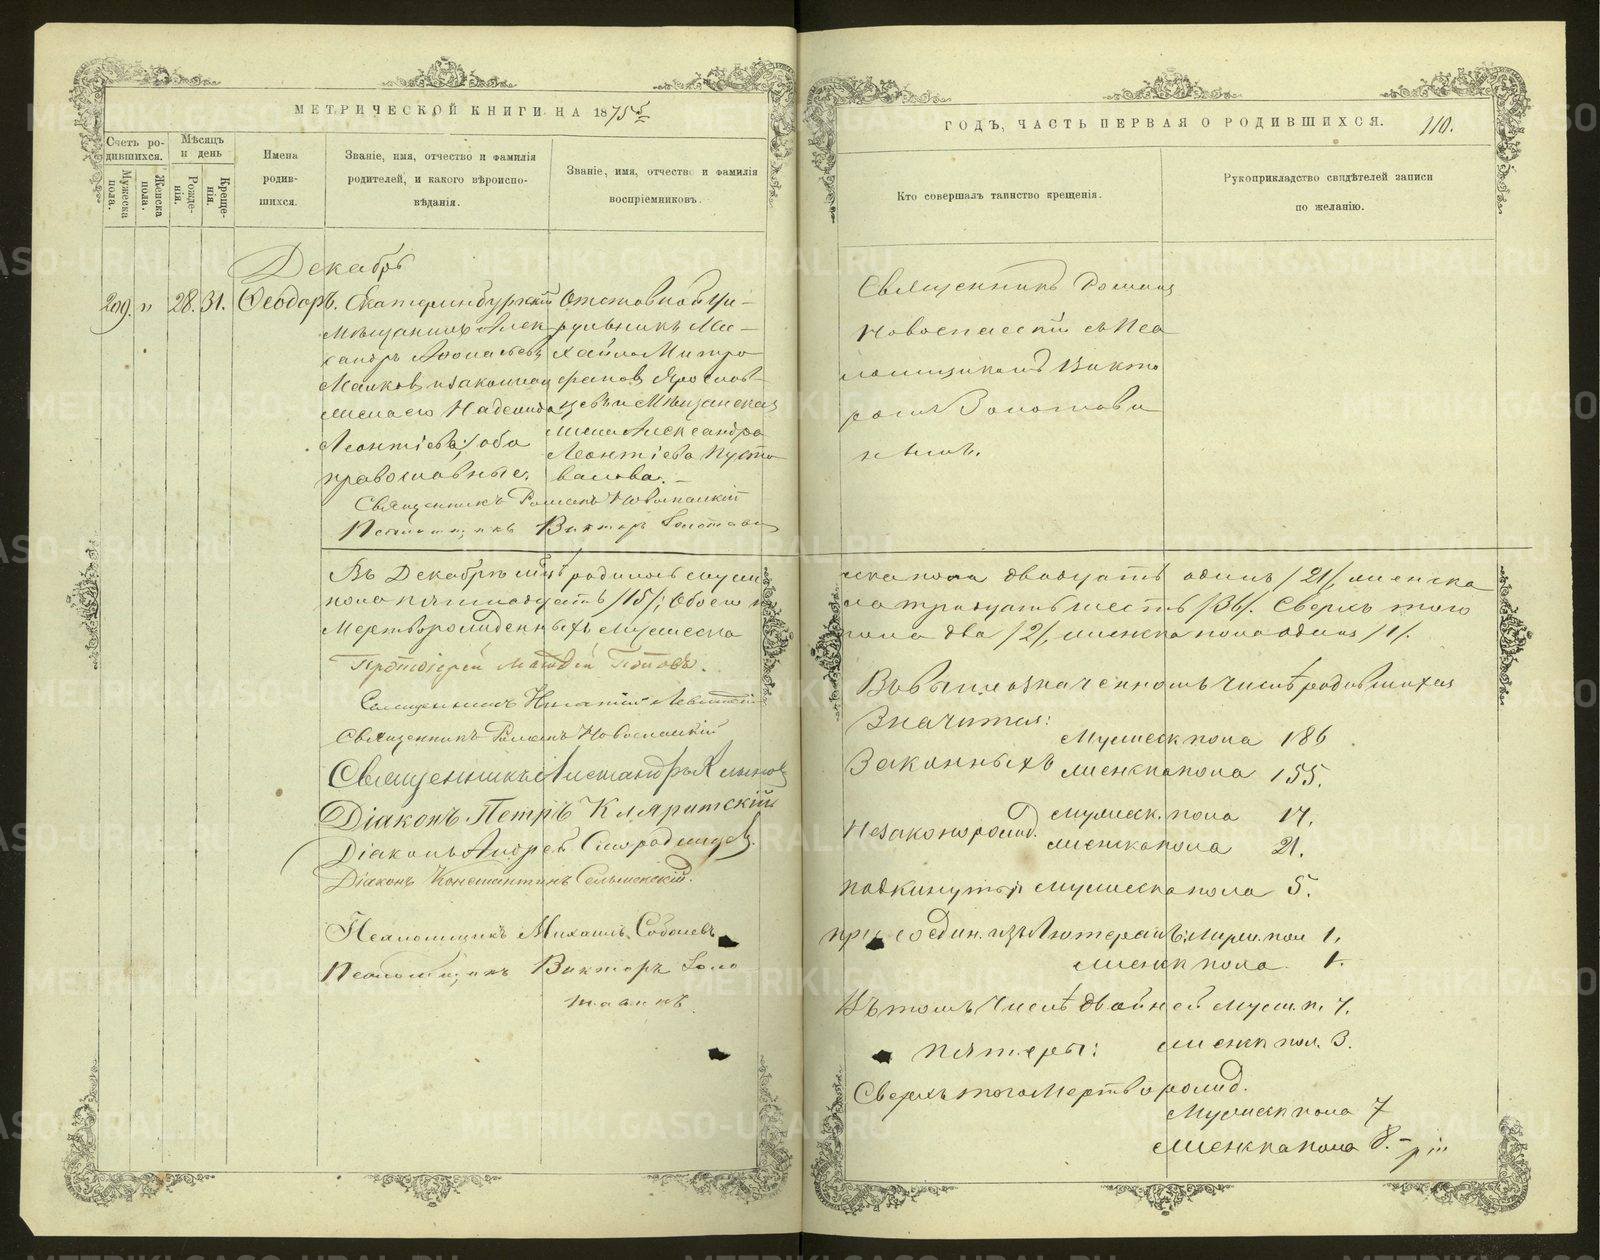 МЕТРИЧЕСКОЙ КНИГИ НА 1875
Счетъ родившихся.
Мужеска пола.
Женска пола.
Мѣсяцъ и день
Рожденія.
Крещенія.
Имена родившихся.
Званіе, имя, отчество и фамилія родителей, и какого вѣроисповѣданія.
Званіе, имя, отчество и фамилія воспріемниковъ.
Декабрь
209. " 28. 31. Ѳеодоръ.
Екатеринбургскій
мѣщанинъ Алек
сандръ
и законная
жена его Надежда
Леонтіева, оба
православные.
Отставной
Ми-
хаилъ Митро
фановъ Ярослав-
цевъ и Мѣщанская
жена Александра
Леонтіева Пусто
валова.
Священникъ Романъ Новоспасскій
Псаломщикъ Викторъ Золотавинъ
Въ Декабрѣ родилось муж
пола пятнадцать /15/, Обоего
Мертворожденныхъ мужеска
Протоіерей Матѳій Поповъ.
Священникъ Игнатій Левитскій
Священникъ Романъ Новоспасскій
Священникъ Александръ
Діаконъ Петръ
Діаконъ Андрей Смородинцевъ.
Діаконъ Константинъ
Псаломщикъ Михаилъ Соболевъ
Псаломщикъ Викторъ Золо
тавинъ.
ГОДЪ, ЧАСТЬ ПЕРВАЯ О РОДИВШИХСЯ. 110.
Кто совершалъ таинство крещенія.
Рукоприкладство свидѣтелей записи по желанію.
Священникъ Романъ
Новоспасскій съ Пса
ломщикомъ Викто
ромъ Золотави
нымъ.
женска пола двадцать одинъ /21/, женска
ла тридцать шесть /36/. Сверхъ того
пола два /2/, женска пола одинъ /1/.
Въ вышеозначенномъ числѣ родившихся
Значится:
Мужеск пола 186
Законныхъ женска пола 155.
Незаконорожд. мужеск. пола 17.
женска пола 21.
Подкинутыхъ мужеска пола 5.
присоедин. изъ Лютеранъ: Мужск. пол 1.
женск пола. 1.
Въ томъ числѣ двойней муж. п. 7.
женск пол. 3.
Сверхъ того Мертворожд.
Мужеск пола 7
женска пола 8.
METRIKI.GASO-URAL.RU